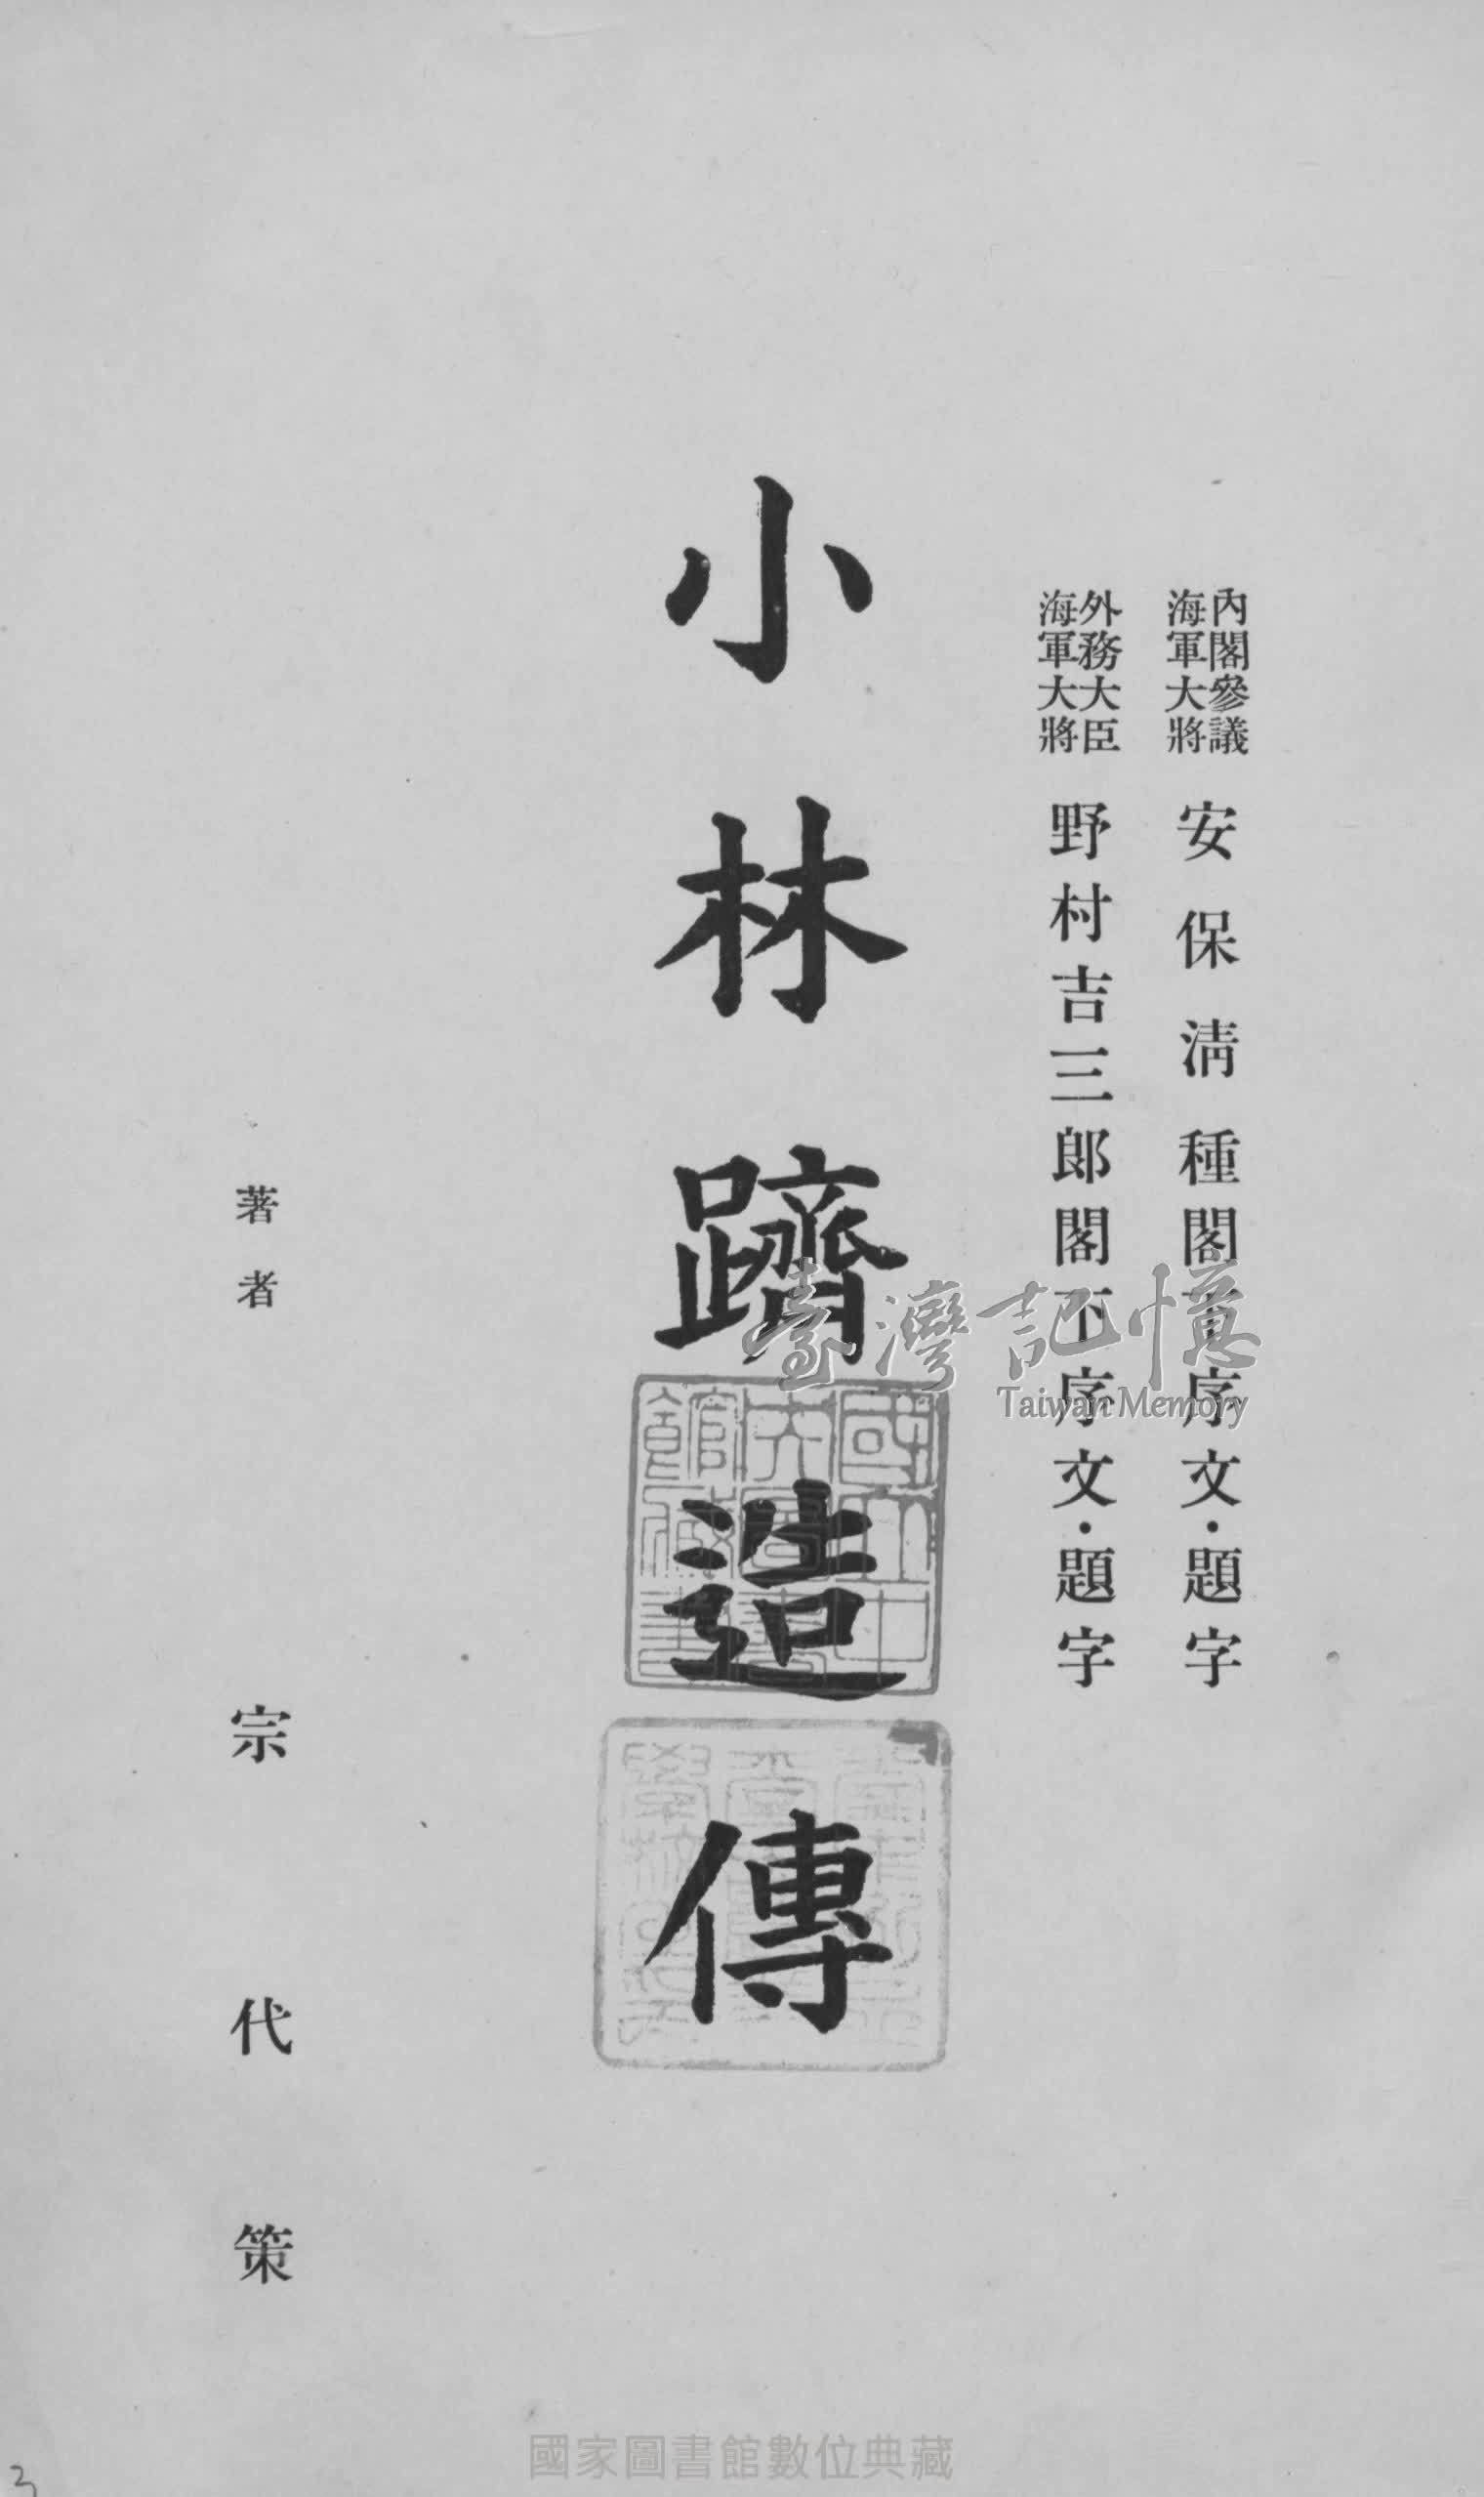 內閣參議
海軍大將
安保淸種閣下序文・題字
外務大臣
海軍大將
野村吉三郎閣下序文・題字
小林躋造傳
著者 宗代策
臺灣記憶
Taiwan Memory
國家圖書館數位典藏
3